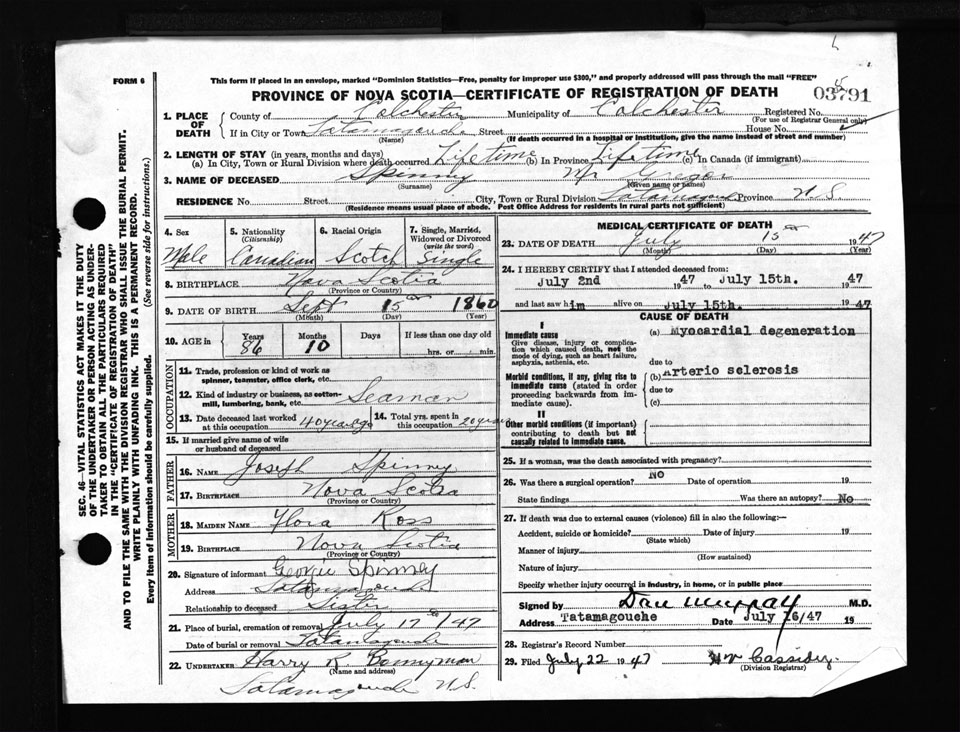 FORM 6
This form if placed in an envelope, marked "Dominion Statistics—Free, penalty for improper use $300," and properly addressed will pass through the mail "FREE"
PROVINCE OF NOVA SCOTIA—CERTIFICATE OF REGISTRATION OF DEATH
03791
1. PLACE OF DEATH County of Colchester Municipality of Colchester Registered No.
(For use of Registrar General only)
If in City or Town Tatamagouche Street House No.
(Name) (If death occurred in a hospital or institution, give the name instead of street and number)
2. LENGTH OF STAY (in years, months and days)
(a) In City, Town or Rural Division where death occurred Lifetime (b) In Province Lifetime (c) In Canada (if immigrant)
3. NAME OF DECEASED Spinney Mc Gregor
(Surname) (Given name or names)
RESIDENCE No. Street City, Town or Rural Division Tatamagouche Province N.S.
(Residence means usual place of abode. Post Office Address for residents in rural parts not sufficient)
4. Sex 5. Nationality (Citizenship) 6. Racial Origin 7. Single, Married, Widowed or Divorced (write the word)
Male Canadian Scotch Single
8. BIRTHPLACE Nova Scotia
(Province or Country)
9. DATE OF BIRTH Sept 15th 1860
(Month) (Day) (Year)
10. AGE in Years Months Days If less than one day old
86 10 hrs. or min.
OCCUPATION
11. Trade, profession or kind of work as spinner, teamster, office clerk, etc.
12. Kind of industry or business, as cotton-mill, lumbering, bank, etc. Seaman
13. Date deceased last worked at this occupation 40 years ago 14. Total yrs. spent in this occupation 20 years
15. If married give name of wife or husband of deceased
FATHER
16. NAME Joseph Spinney
17. BIRTHPLACE Nova Scotia
(Province or Country)
MOTHER
18. MAIDEN NAME Flora Ross
19. BIRTHPLACE Nova Scotia
(Province or Country)
20. Signature of informant Georgie Spinney
Address Tatamagouche
Relationship to deceased Sister
21. Place of burial, cremation or removal July 17th/47
Date of burial or removal Tatamagouche
22. UNDERTAKER Harry R. Bonnyman
(Name and address)
Tatamagouche N.S.
MEDICAL CERTIFICATE OF DEATH
23. DATE OF DEATH July 15th 1947
(Month) (Day)
24. I HEREBY CERTIFY that I attended deceased from:
July 2nd 1947 to July 15th. 1947
and last saw him alive on July 15th. 1947
CAUSE OF DEATH
I
Immediate cause (a) Myocardial degeneration
Give disease, injury or complication which caused death, not the mode of dying, such as heart failure, asphyxia, asthenia, etc.
due to
Morbid conditions, if any, giving rise to immediate cause (stated in order proceeding backwards from immediate cause). (b) Arterio sclerosis
due to
(c)
II
Other morbid conditions (if important) contributing to death but not causally related to immediate cause.
25. If a woman, was the death associated with pregnancy?
26. Was there a surgical operation? No Date of operation 19
State findings Was there an autopsy? No
27. If death was due to external causes (violence) fill in also the following:—
Accident, suicide or homicide? Date of injury 19
(State which)
Manner of injury
(How sustained)
Nature of injury
Specify whether injury occurred in industry, in home, or in public place
Signed by Dan Murray M.D.
Address Tatamagouche Date July 16/47 19
28. Registrar's Record Number
29. Filed July 22 1947 Cassidy
(Division Registrar)
SEC. 46—VITAL STATISTICS ACT MAKES IT THE DUTY
OF THE UNDERTAKER OR PERSON ACTING AS UNDERTAKER TO OBTAIN ALL THE PARTICULARS REQUIRED
IN THE "CERTIFICATE OF REGISTRATION OF DEATH"
AND TO FILE THE SAME WITH THE DIVISION REGISTRAR WHO SHALL ISSUE THE BURIAL PERMIT.
WRITE PLAINLY WITH UNFADING INK. THIS IS A PERMANENT RECORD.
Every item of Information should be carefully supplied. (See reverse side for instructions.)